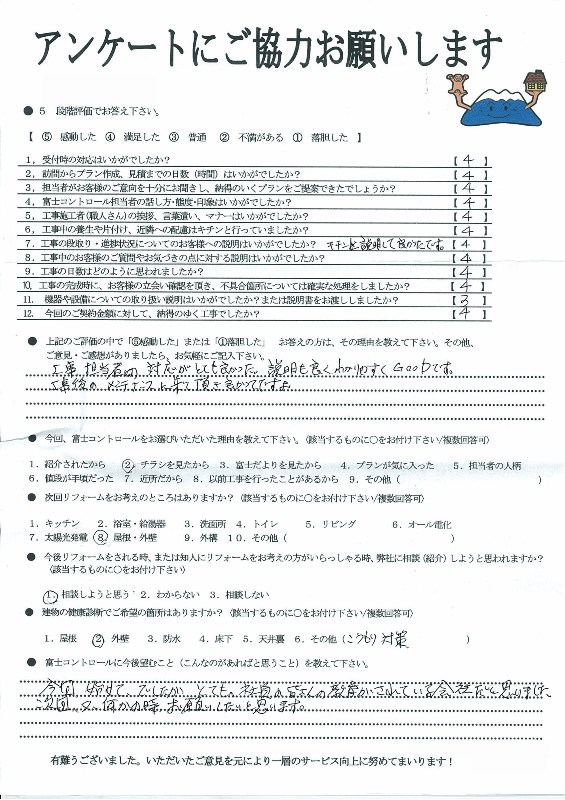 アンケートにご協力お願いします
● 5 段階評価でお答え下さい。
【 ⑤ 感動した ④ 満足した ③ 普通 ② 不満がある ① 落胆した 】
1，受付時の対応はいかがでしたか？ 【 4 】
2，訪問からプラン作成、見積までの日数（時間）はいかがでしたか？ 【 4 】
3，担当者がお客様のご意向を十分にお聞きし、納得のいくプランをご提案できたでしょうか？ 【 4 】
4，富士コントロール担当者の話し方・態度・印象はいかがでしたか？ 【 4 】
5，工事施工者（職人さん）の挨拶、言葉遣い、マナーはいかがでしたか？ 【 4 】
6，工事中の養生や片付け、近隣への配慮はキチンと行っていましたか？ 【 4 】
7，工事の段取り・進捗状況についてのお客様への説明はいかがでしたか？ キチンと説明して良かったです。 【 4 】
8，工事中のお客様のご質問やお気づきの点に対する説明はいかがでしたか？ 【 4 】
9，工事の日数はどのように思われましたか？ 【 4 】
10，工事の完成時に、お客様の立会い確認を頂き、不具合箇所については確実な処理をしましたか？ 【 4 】
11，機器や設備についての取り扱い説明はいかがでしたか？または説明書をお渡ししましたか？ 【 3 】
12，今回のご契約金額に対して、納得のゆく工事でしたか？ 【 4 】
● 上記のご評価の中で「⑤感動した」または「①落胆した」 お答えの方は、その理由を教えて下さい。その他、
ご意見・ご感想がありましたら、お気軽にご記入下さい。
工事担当者の 対応がとても良かった。説明も良くわかりやすくGooDです。
工事後のメンテナンスに来て頂き良かったですよ
● 今回、富士コントロールをお選びいただいた理由を教えて下さい。（該当するものに○をお付け下さい/複数回答可）
1．紹介されたから ②．チラシを見たから 3．富士だよりを見たから 4．プランが気に入った 5．担当者の人柄
6．値段が手頃だった 7．近所だから 8．以前工事を行ったことがあるから 9．その他（ ）
● 次回リフォームをお考えのところはありますか？（該当するものに○をお付け下さい/複数回答可）
1．キッチン 2．浴室・給湯器 3．洗面所 4．トイレ 5．リビング 6．オール電化
7．太陽光発電 ⑧．屋根・外壁 9．外構 10．その他（ ）
● 今後リフォームをされる時、または知人にリフォームをお考えの方がいらっしゃる時、弊社に相談（紹介）しようと思われますか？
（該当するものに○をお付け下さい）
①．相談しようと思う 2．わからない 3．相談しない
● 建物の健康診断でご希望の箇所はありますか？（該当するものに○をお付け下さい/複数回答可）
1．屋根 ②．外壁 3．防水 4．床下 5．天井裏 6．その他（こうもり対策 ）
● 富士コントロールに今後望むこと（こんなのがあればと思うこと）を教えて下さい。
今回 始めて でしたが、とても。社員の皆さんの教育がされている会社だと思いました
次回、又、何かの時、お願いしたいと思います。
有難うございました。いただいたご意見を元により一層のサービス向上に努めてまいります！